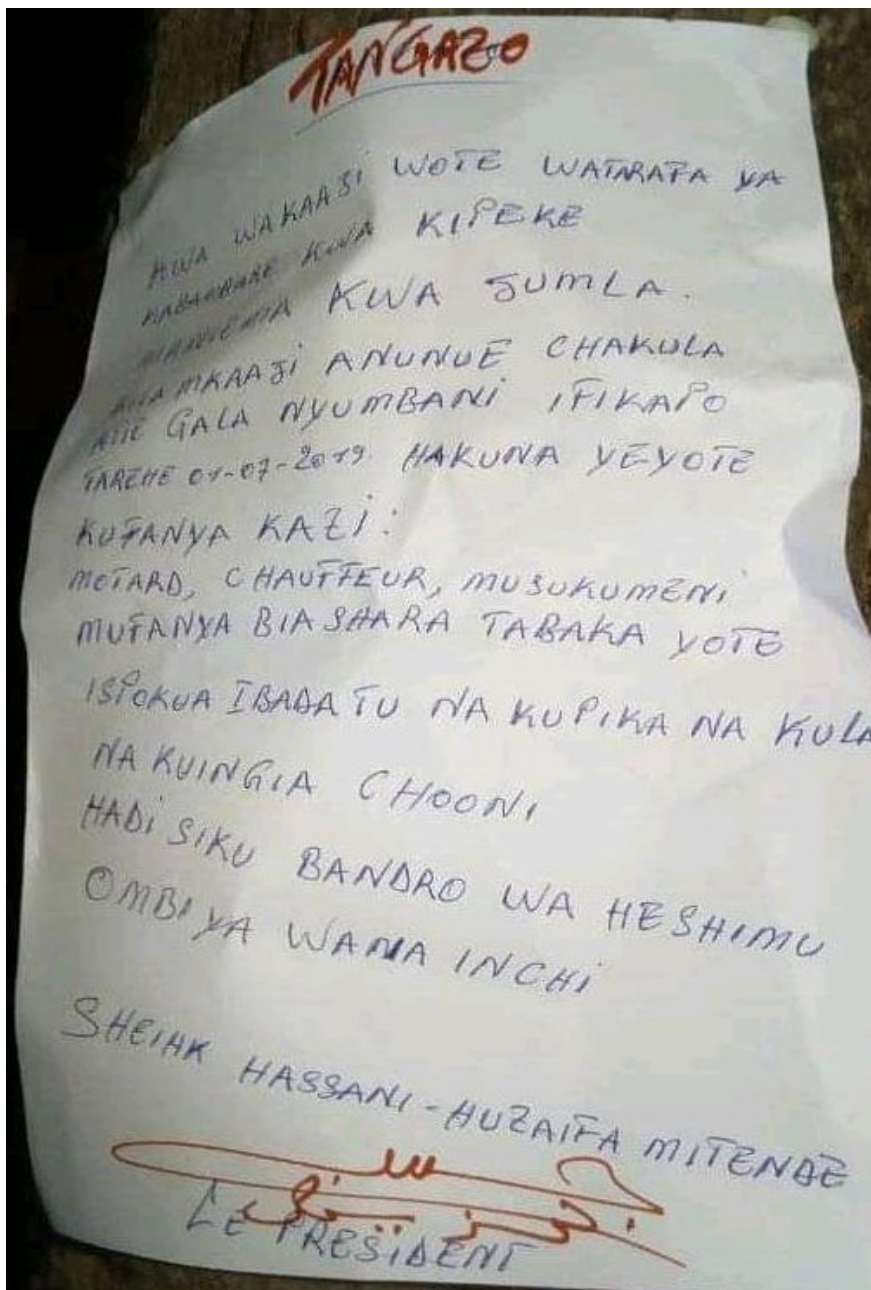 TANGAZO
KWA WAKAAJI WOTE WATARAFA YA
KABAMBARE KWA KIPEKE
MANIEMA KWA JUMLA.
KILA MKAAJI ANUNUE CHAKULA
ATIE GALA NYUMBANI IFIKAPO
TAREHE 01-07-2019. HAKUNA YEYOTE
KUFANYA KAZI:
MOTARD, CHAUFFEUR, MUSUKUMENI
MUFANYA BIASHARA TABAKA YOTE
ISPOKUA IBADA TU NA KUPIKA NA KULA
NA KUINGIA CHOONI
HADI SIKU BANDRO WA HESHIMU
OMBI YA WANA INCHI
SHEIHK HASSANI-HUZAIFA MITENDE
LE PRESIDENT